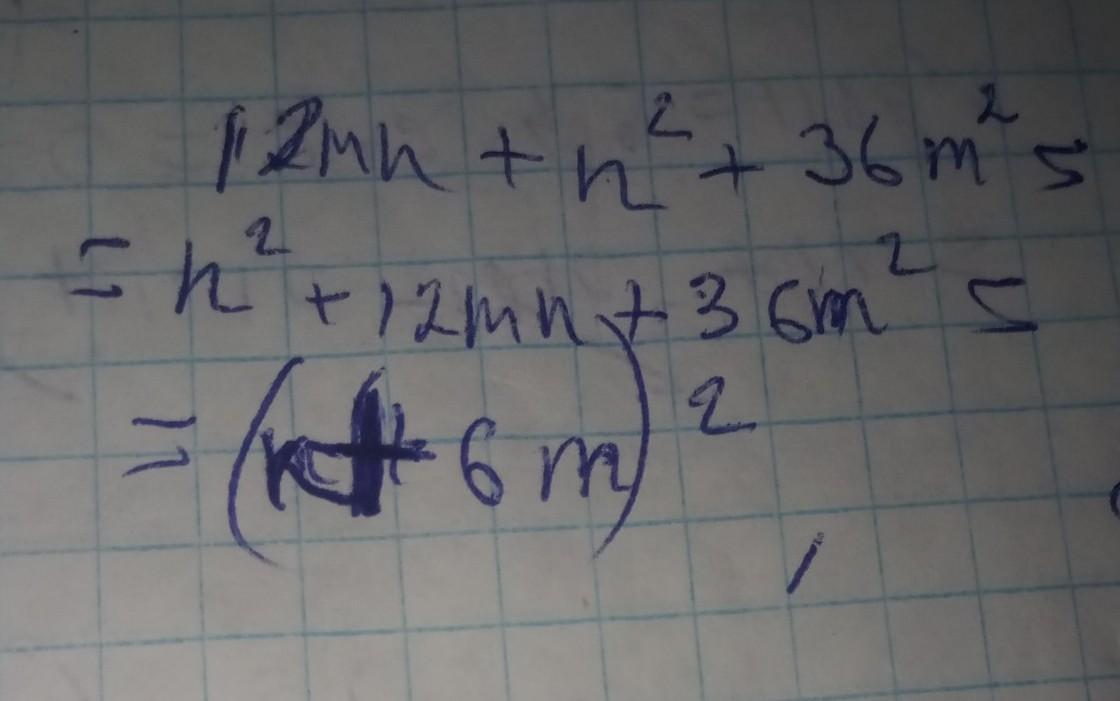 12mn + n² + 36m² =
= n² + 12mn + 36m² =
= (n + 6m)²